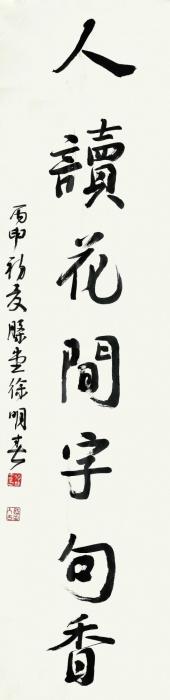 人讀花間字句香
丙申初夏滕堂徐明春